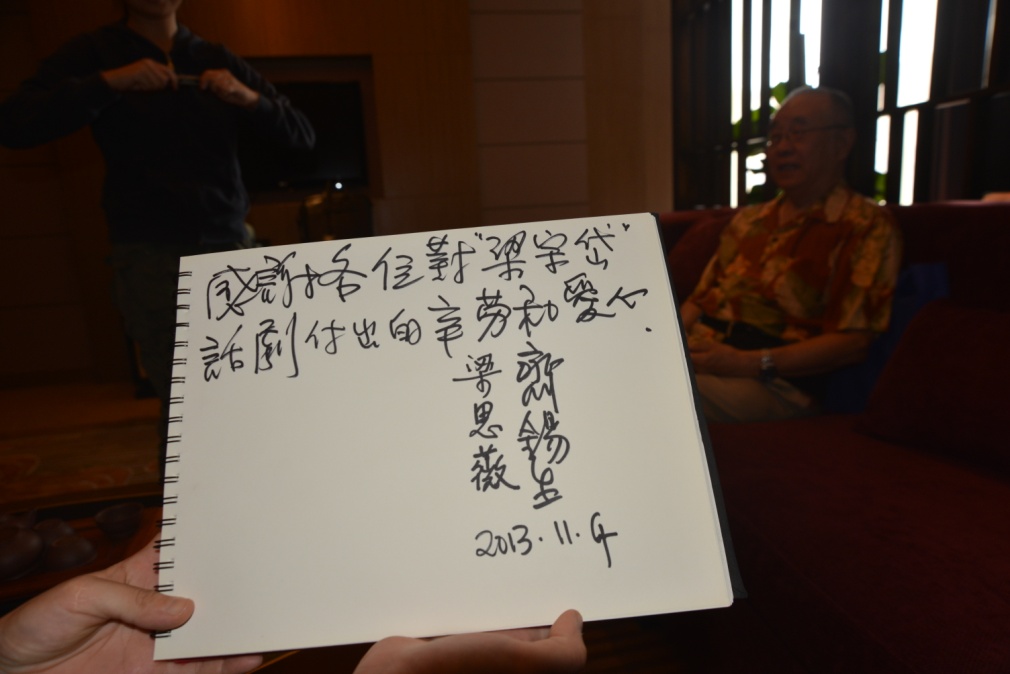 感謝各位對"梁宗岱"
話劇付出的辛勞和愛心.
齊錫生
梁思薇
2013.11.4